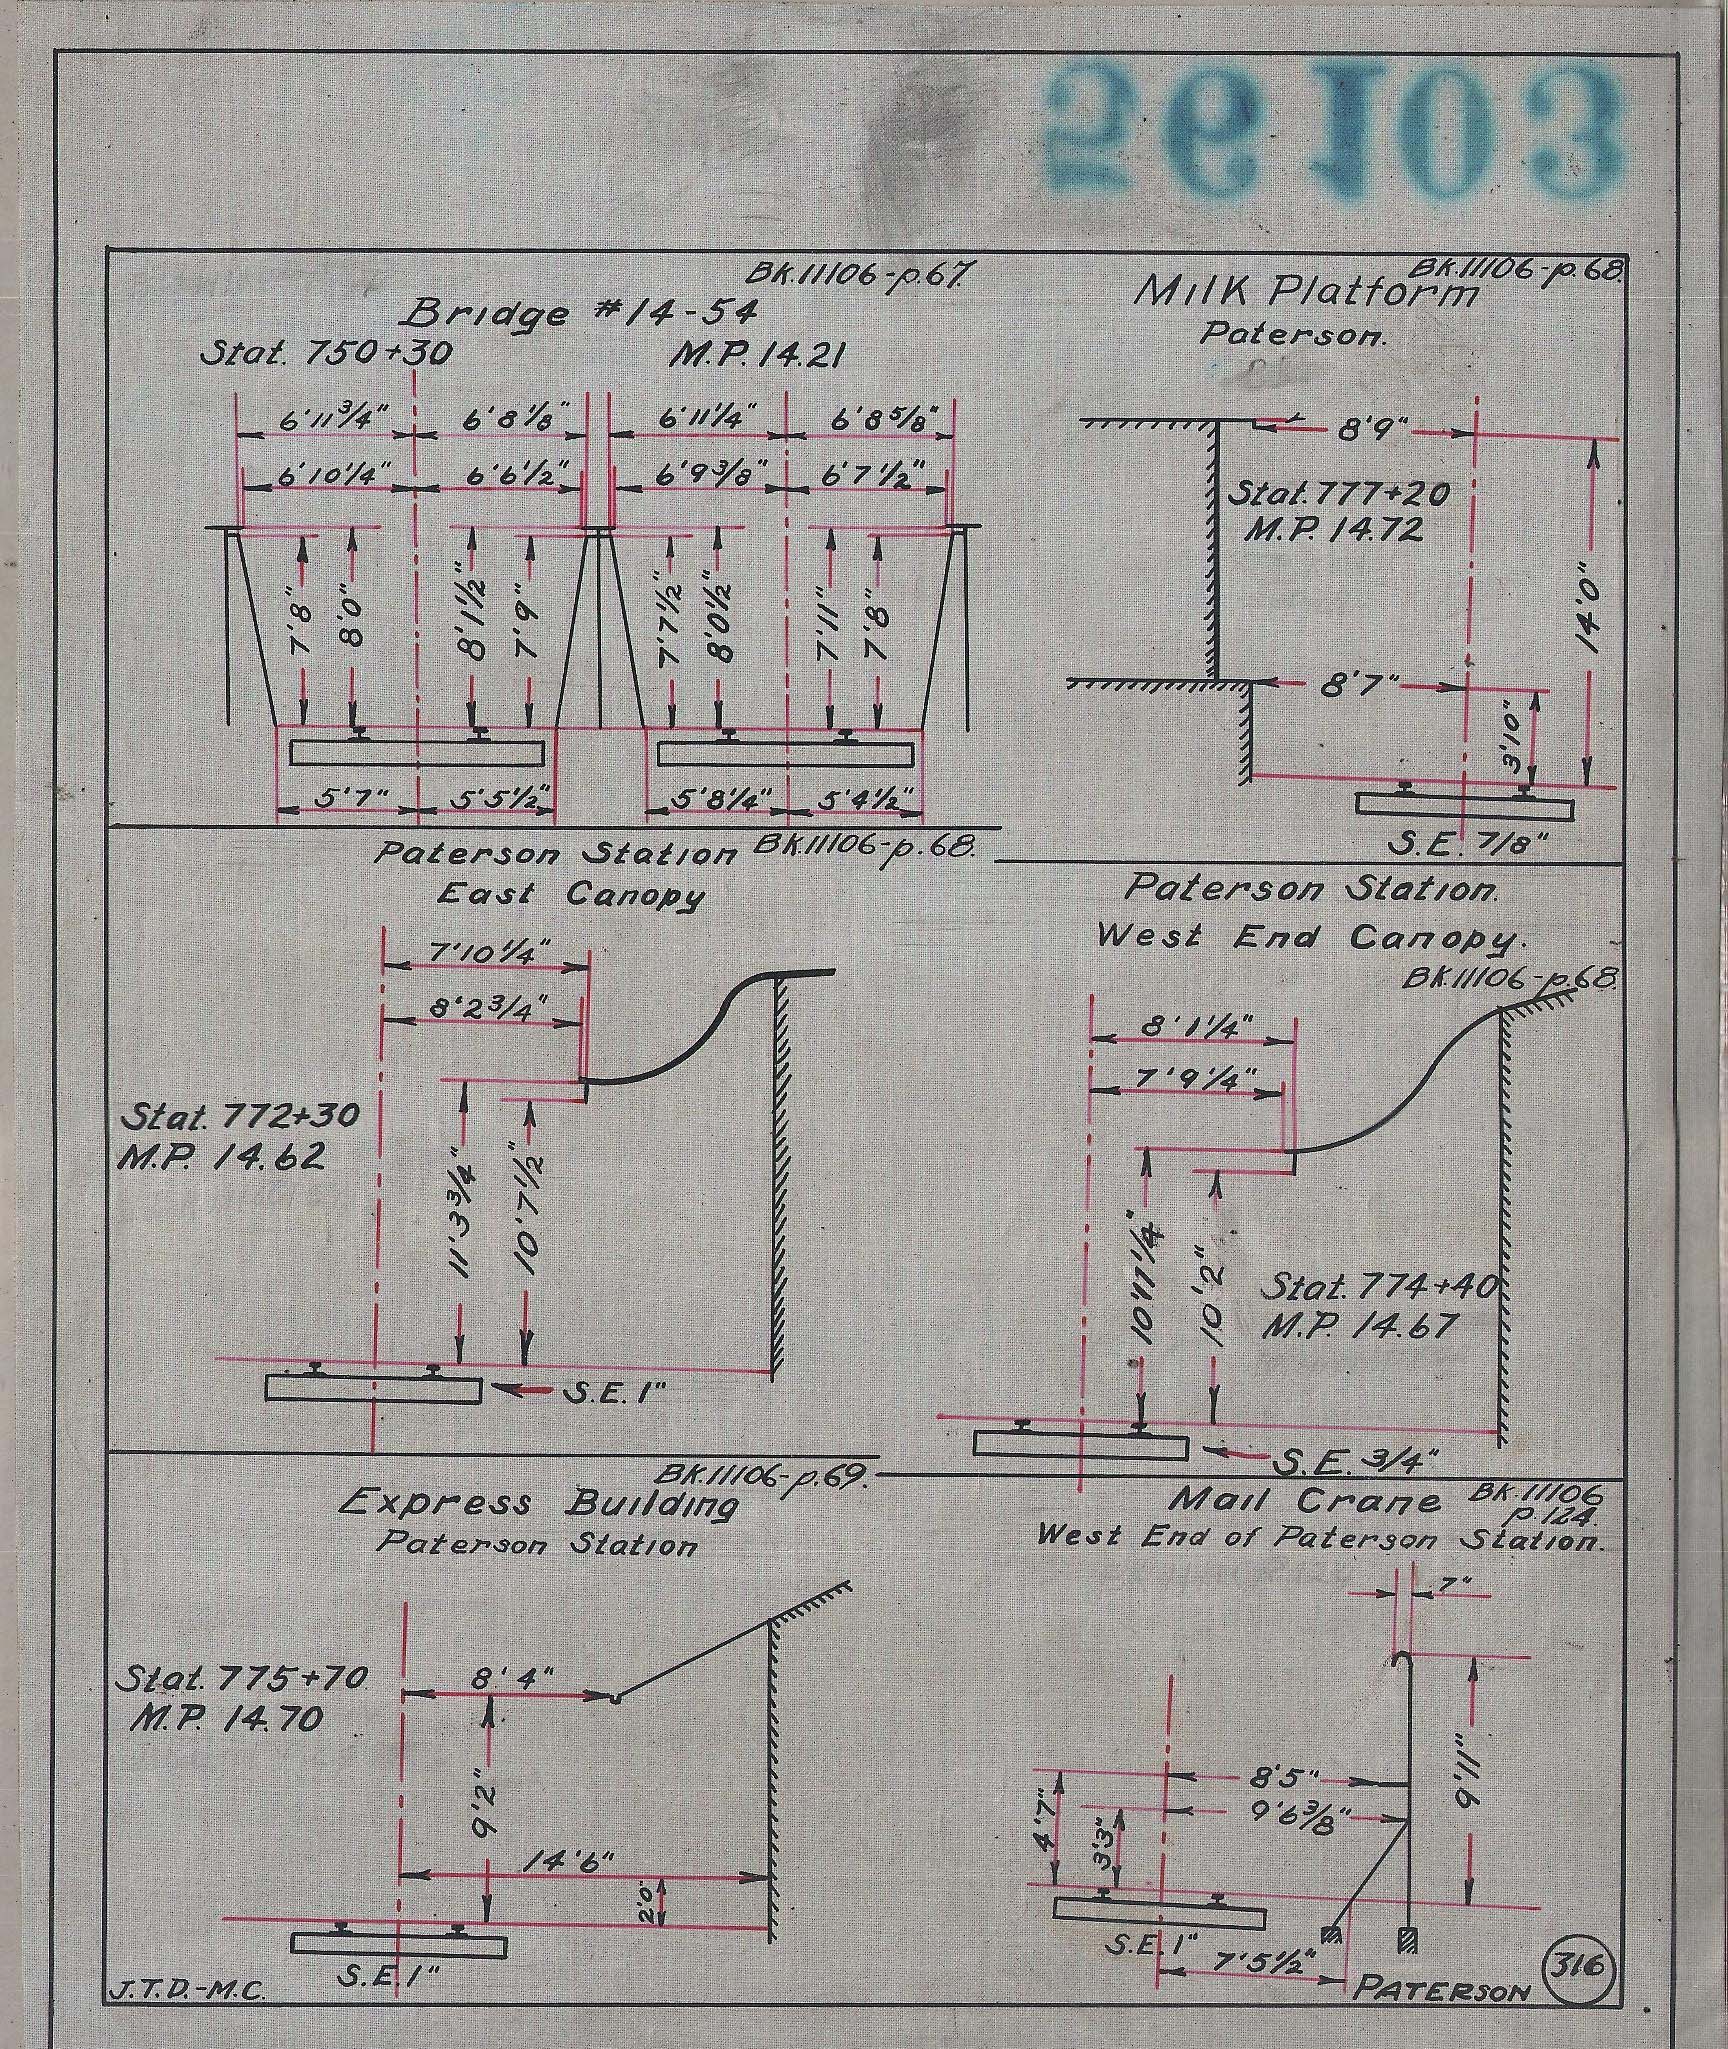 56103
BK.11106-p.67.
Bridge #14-54
Stat. 750+30 M.P. 14.21
6'11 3/4" 6'8 1/8" 6'11 1/4" 6'8 5/8"
6'10 1/4" 6'6 1/2" 6'9 3/8" 6'7 1/2"
7'8" 8'0" 8'1 1/2" 7'9" 7'7 1/2" 8'0 1/2" 7'11" 7'8"
5'7" 5'5 1/2" 5'8 1/4" 5'4 1/2"
BK.11106-p.68.
Milk Platform
Paterson.
8'9"
Stat. 777+20
M.P. 14.72
14'0"
8'7"
3'10"
S.E. 7/8"
Paterson Station BK.11106-p.68.
East Canopy
7'10 1/4"
8'2 3/4"
Stat. 772+30
M.P. 14.62
11'3 3/4" 10'7 1/2"
S.E. 1"
Paterson Station.
West End Canopy.
BK.11106-p.68.
8'1 1/4"
7'9 1/4"
10'11 1/4" 10'2"
Stat. 774+40
M.P. 14.67
S.E. 3/4"
BK.11106-p.69.
Express Building
Paterson Station
Stat. 775+70
M.P. 14.70
8'4"
9'2"
14'6"
2'0"
S.E. 1"
J.T.D.-M.C.
Mail Crane BK.11106
p.124.
West End of Paterson Station.
7"
8'5"
9'6 3/8"
9'11"
4'7" 3'3"
S.E. 1"
7'5 1/2"
PATERSON 316